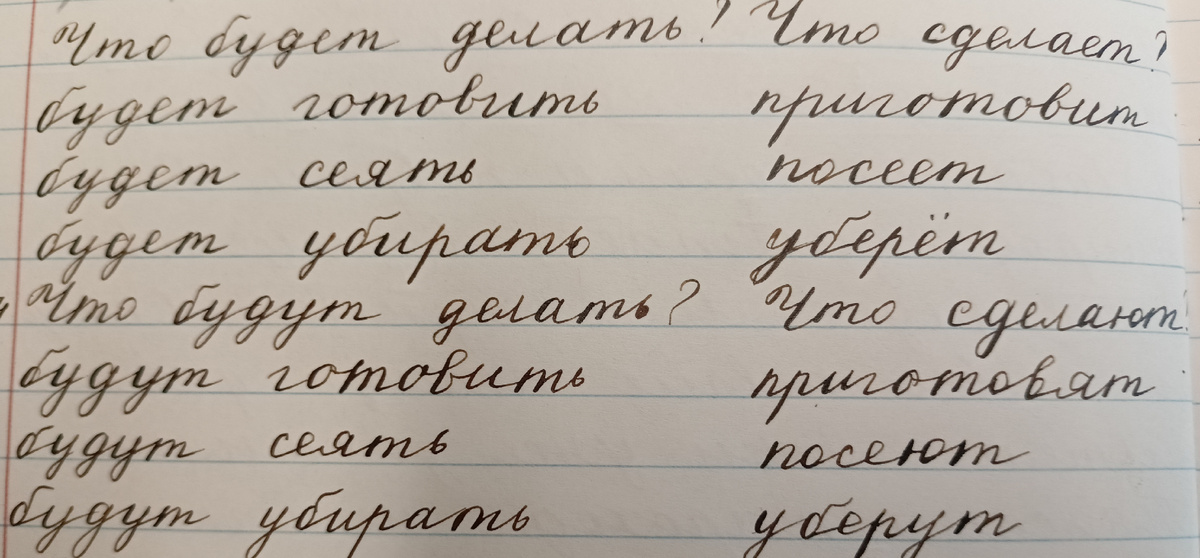 Что будет делать? Что сделает?
будет готовить приготовит
будет сеять посеет
будет убирать уберёт
Что будут делать? Что сделают?
будут готовить приготовят
будут сеять посеют
будут убирать уберут